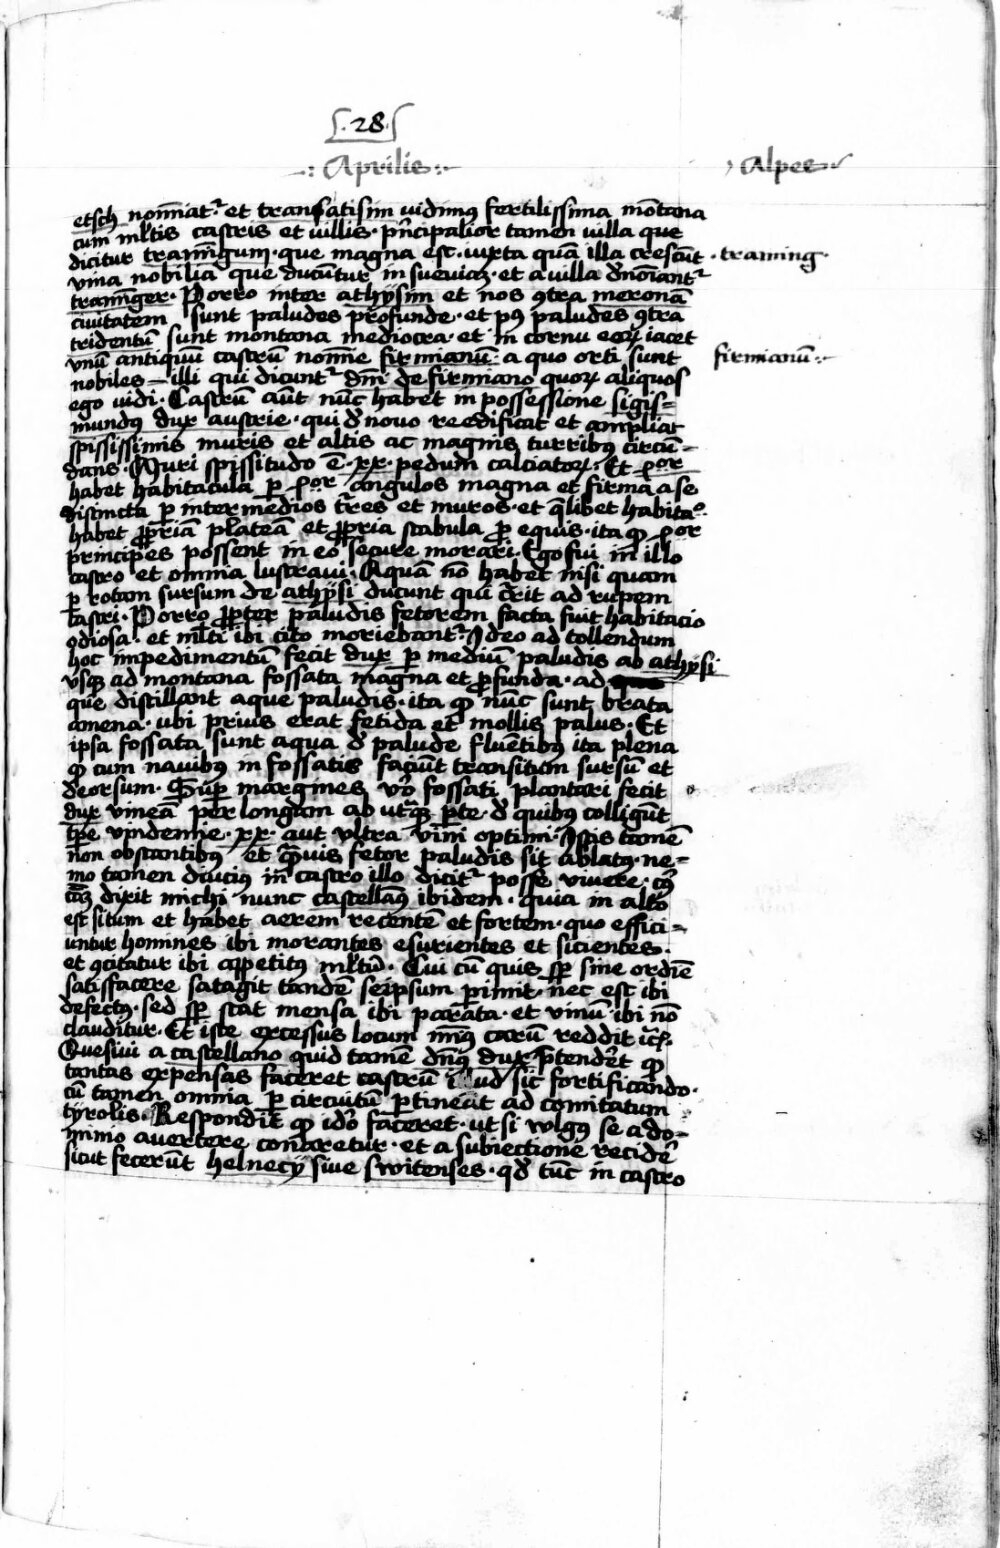 .28.
Aprilis
Alpes
etsch nom̄at᷑. et trans atisim vidimus fertilissima mōtana
cum ml̄tis castris et villis. prīcipalior tamen villa que
dicitur traminḡum. que magna est. iuxta quā illa crescūt
traming.
vina nobilia que ducūtur in sueviaꝫ. et a villa dn̄oīant᷑
traminḡer. Porro inter athysim et nos ꝯtra meronā
civitatem sunt paludes profunde. et pꝰ paludes ꝯtra
tridentū sunt montana mediocra. et in cornu eoꝝ iacet
vnū antiquū castrū nomīe firmianū. a quo orti sunt
firmianū
nobiles illi qui dicunt᷑ dn̄i de firmiano quoꝝ aliquos
ego vidi. Castrū aūt nūc habet in possessione sigis=
mundus dux austrie. qui d̄ novo reedificat et ampliat
spississimis muris et altis ac magnis turribꝰ circū=
dans. Muri spissitudo ē. xx. pedum calciatoꝝ. Et
habet habitacula ꝑ angulos magna et firma a se
distincta ꝑ intermedios t̄res et muros. et q̄libet habita᷑o.
habet ꝓpriam plateam et ꝓpria stabula ꝓ equis. ita ꝙ
principes possent in eo secure morari. Ego fui in illo
castro et omnia lustravi. Aquā nō habet nisi quam
ꝑ rotam sursum de athysi ducunt qui t̄rit ad rupem
castri. Porro ꝓpter paludis fetorem facta fuit habitacio
odiosa. et ml̄ti ibi cito moriebant᷑. Ideo ad tollendum
hoc impedimentū fecit dux ꝑ mediū paludis ab athysi
vsqꝫ ad montana fossata magna et ꝓfunda. ad
que distillant aque paludis. ita ꝙ nūc sunt brata
amena. ubi prius erat fetida et mollis palus. Et
ipsa fossata sunt aqua d̄ palude fluētibꝰ ita plena
ꝙ cum navibꝰ in fossatis faciūt transitum sursū et
deorsum. Suꝑ margines v̄o fossati plantari fecit
dux vineā per longum ab utraqꝫ ꝑte. d̄ quibus colligūt
tp̄e vindemie. xx. aut vltra vini optimi. Istis tamē
non obstantibꝰ et q̄mvis fetor paludis sit ablatꝰ. ne=
mo tamen diucius in castro illo dicit᷑ posse vivere. cꝰ
cām dixit michi nunc castellanꝰ ibidem. quia in alto
est situm et habet aerem recentē et fortem. quo effici=
untur homines ibi morantes esurientes et sicientes.
et ꝯcitatur ibi appetitꝰ ml̄tū. Cui cū quis sꝑ sine ordīe
satisfacere satagit tandē seipsum ꝑimit. nec est ibi
defectꝰ. sed sꝑ stat mensa ibi parata. et vinū ibi nō
clauditur. Et iste excessus locum nimꝰ carū reddit
Quesivi a castellano quid tamē dn̄s dux p̄tenderet ꝙ
tantas expensas faceret castrū illud sic fortificando.
cū tamen omnia ꝑ circuitū ꝑtineāt ad comitatum
tyrolis. Respondit ꝙ idō faceret. ut si wlgꝰ se a do=
mino avertere conaretur. et a subiectione recideret
sicut fecerūt helnecij sive switenses. qd̄ tūc in castro